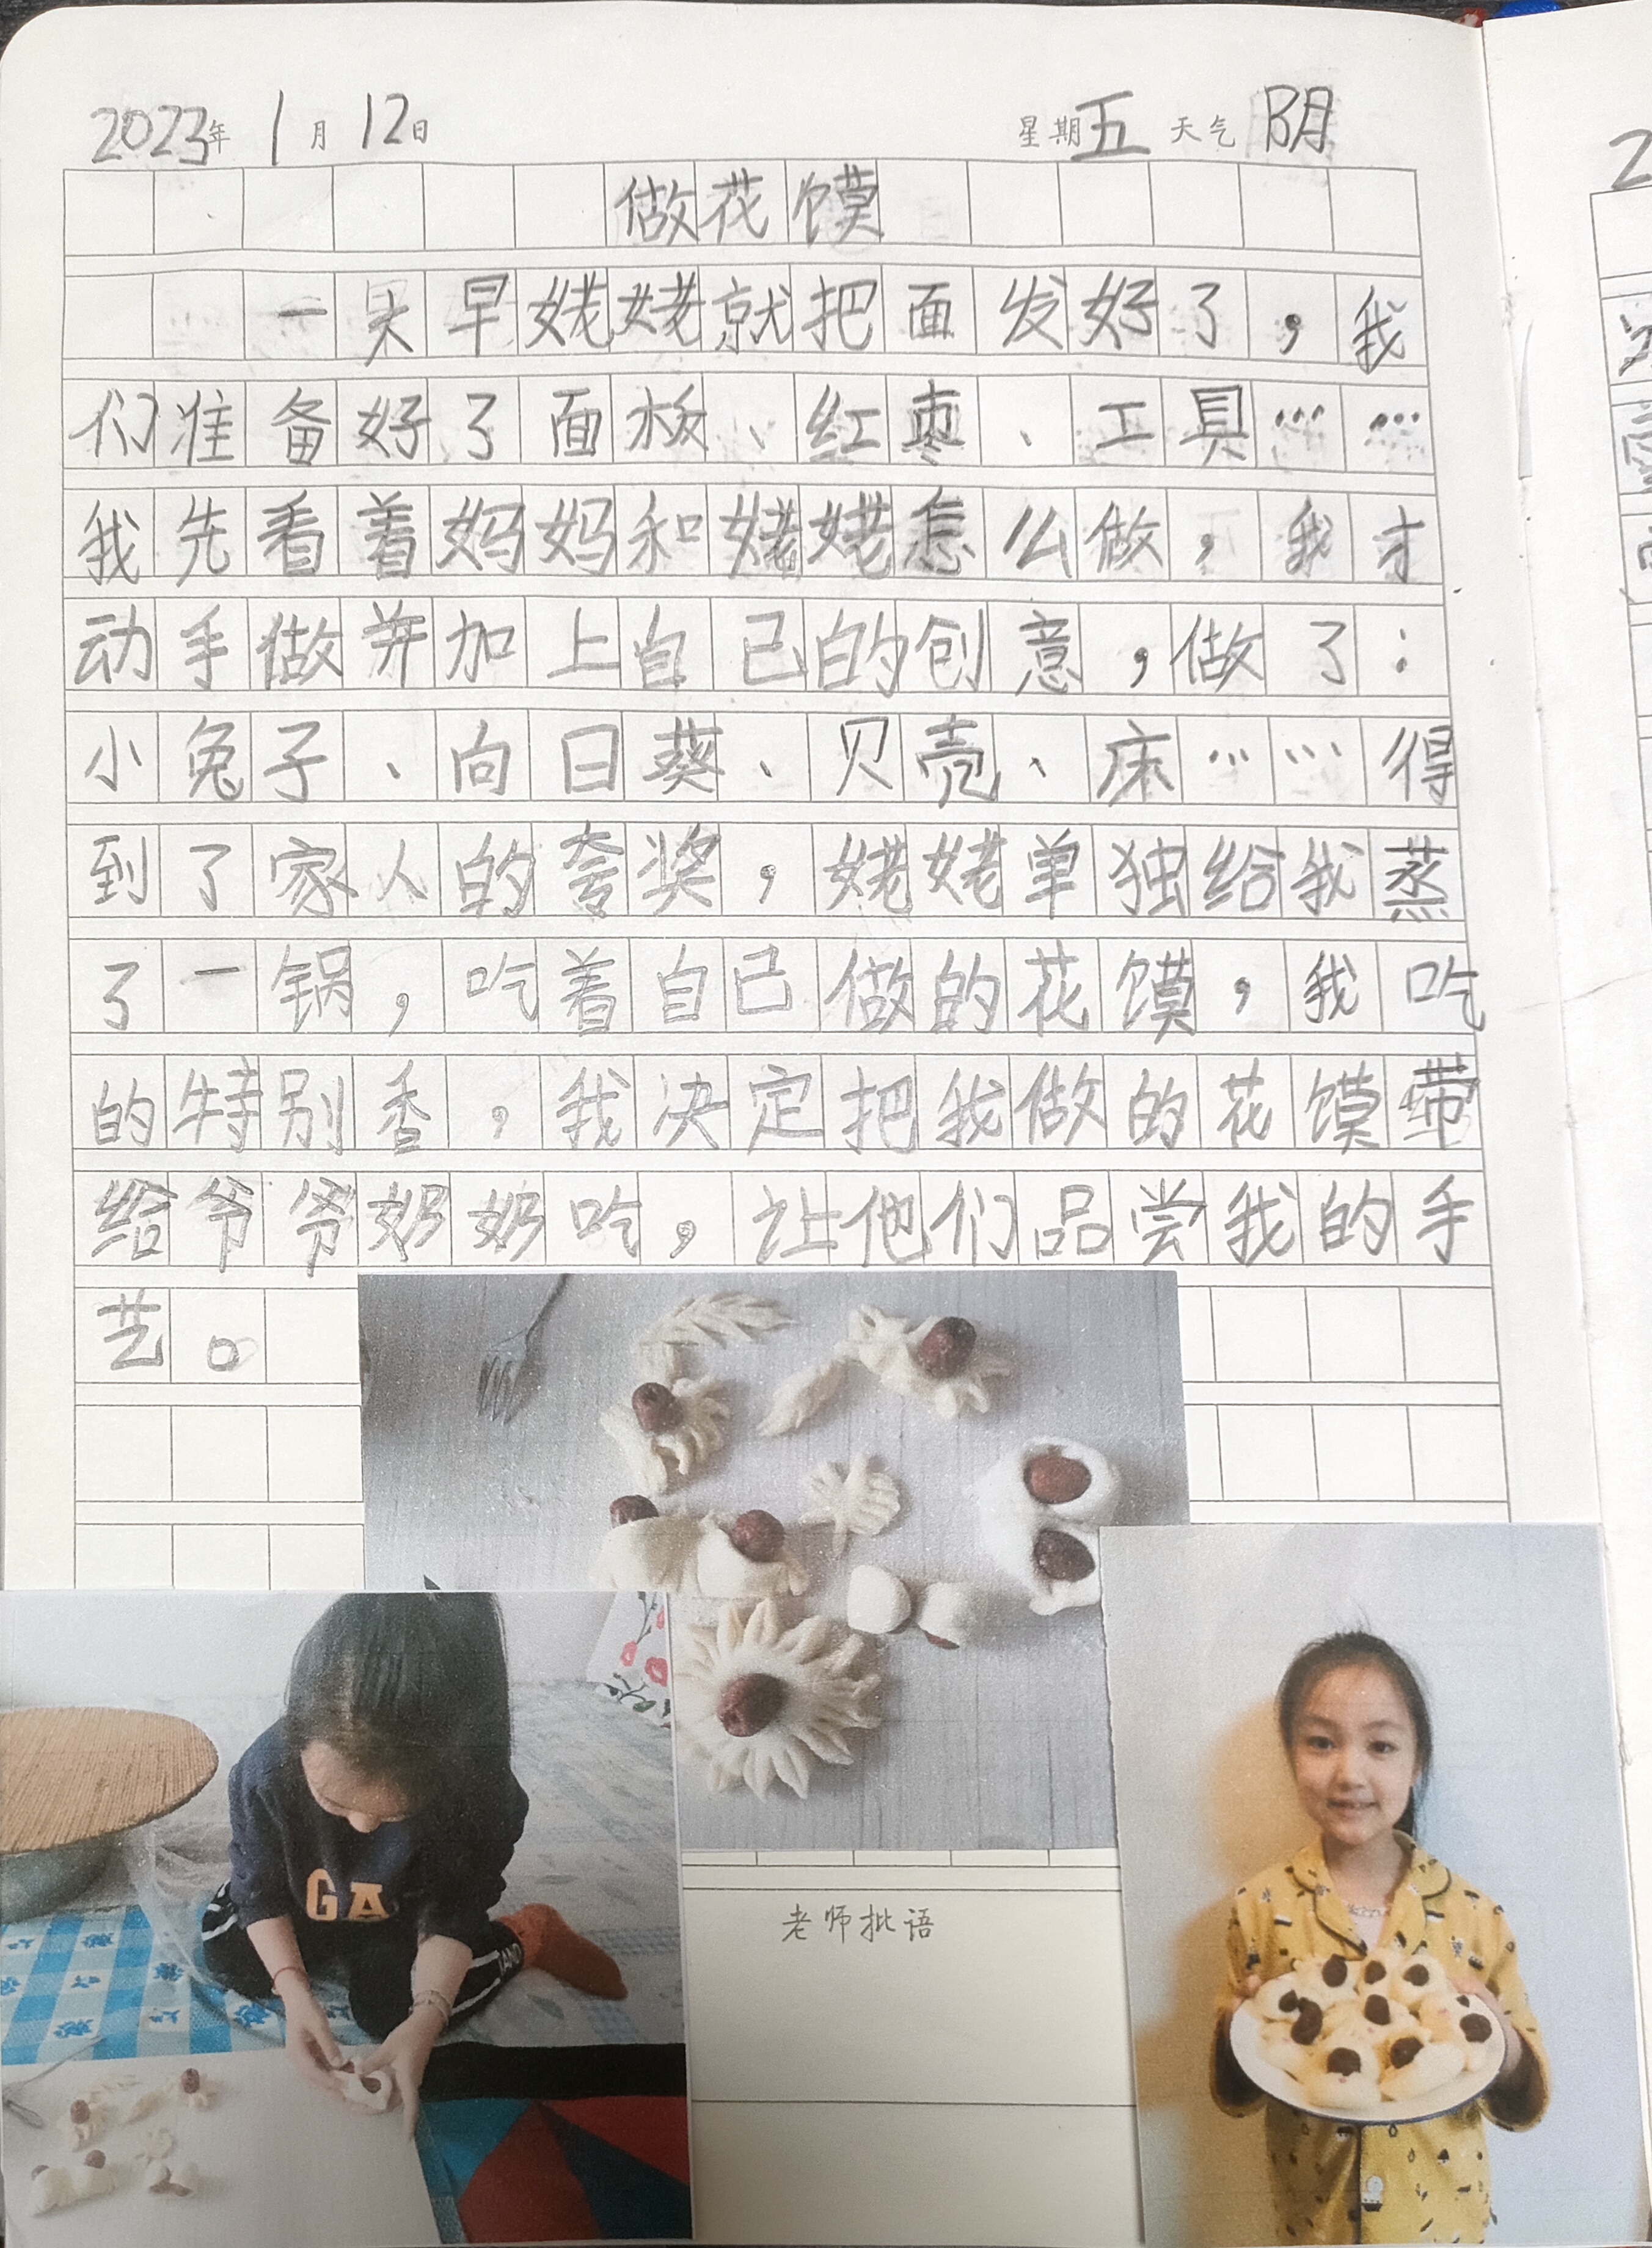 2023年 1月 12日 星期五 天气 阴
做花馍
一大早姥姥就把面发好了，我
们准备好了面板、红枣、工具……
我先看着妈妈和姥姥怎么做，我才
动手做并加上自己的创意，做了：
小兔子、向日葵、贝壳、床……得
到了家人的夸奖，姥姥单独给我蒸
了一锅，吃着自己做的花馍，我吃
的特别香，我决定把我做的花馍带
给爷爷奶奶吃，让他们品尝我的手
艺。
GA
老师批语